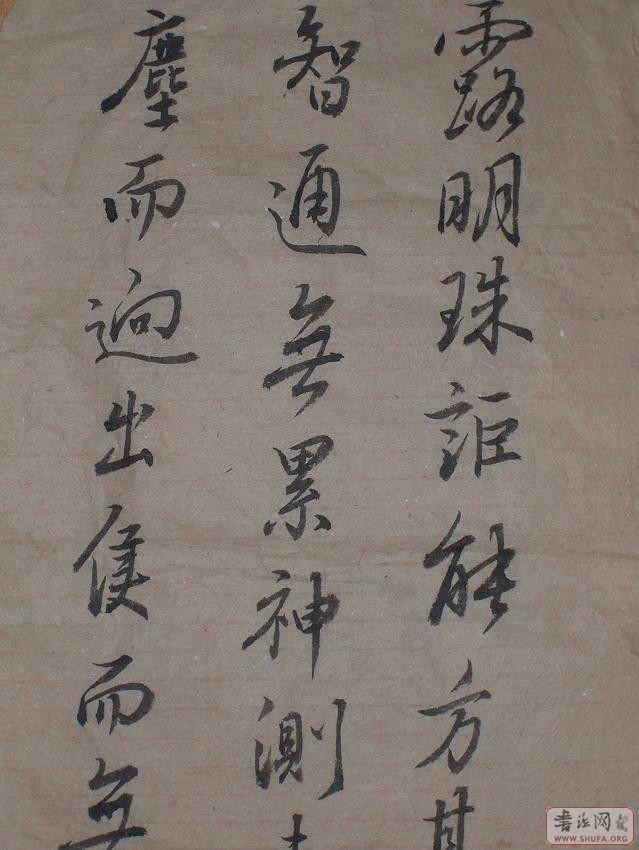 露明珠詎能方其
智通無累神測
塵而迥出隻而無
书法网
WWW.SHUFA.ORG